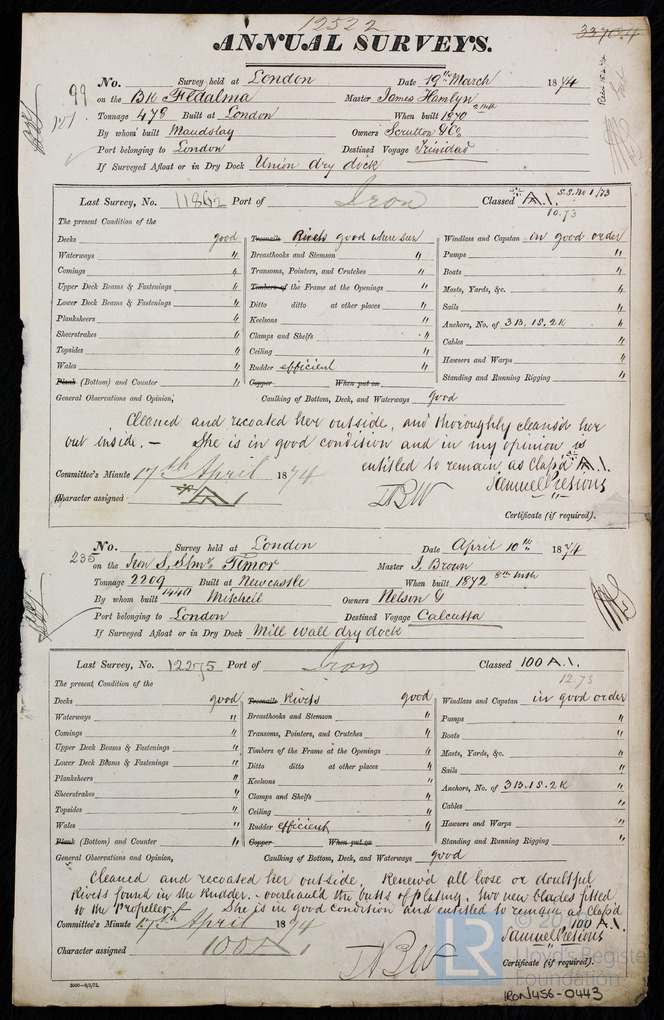 12522
ANNUAL SURVEYS.
No. Survey held at London Date 19th March 1874
99 on the Bk Fedalma Master James Hamlyn
Tonnage 478 Built at London When built 1870 2 mth
By whom built Maudslay Owners Scrutton & Co
Port belonging to London Destined Voyage Trinidad
If Surveyed Afloat or in Dry Dock Union dry dock
Last Survey, No. 11862 Port of Iron Classed A.1. S.S. No 1/73
10.73
The present Condition of the
Decks good
Waterways "
Comings "
Upper Deck Beams & Fastenings "
Lower Deck Beams & Fastenings "
Planksheers "
Sheerstrakes "
Topsides "
Wales "
Plank (Bottom) and Counter "
Treenails Rivets good where seen
Breasthooks and Stemson "
Transoms, Pointers, and Crutches "
Timbers of the Frame at the Openings "
Ditto ditto at other places "
Keelsons "
Clamps and Shelfs "
Ceiling "
Rudder efficient
Copper When put on
Windlass and Capstan in good order
Pumps "
Boats "
Masts, Yards, &c. "
Sails "
Anchors, No. of 3B.1S.2K "
Cables "
Hawsers and Warps "
Standing and Running Rigging "
General Observations and Opinion, Caulking of Bottom, Deck, and Waterways good
Cleaned and recoated her outside, and thoroughly cleans'd her
out inside. — She is in good condition and in my opinion is
entitled to remain as Class'd A.1.
Committee's Minute 17th April 1874
Character assigned
Certificate (if required).
No. Survey held at London Date April 10th 1874
235 on the Iron S. Str. Timor Master J. Brown
Tonnage 2209 Built at Newcastle When built 1872 8th mth
1440
By whom built Mitchell Owners Nelson &
Port belonging to London Destined Voyage Calcutta
If Surveyed Afloat or in Dry Dock Mill wall dry dock
Last Survey, No. 12275 Port of Iron Classed 100 A.1.
12.73
The present Condition of the
Decks good
Waterways "
Comings "
Upper Deck Beams & Fastenings "
Lower Deck Beams & Fastenings "
Planksheers "
Sheerstrakes "
Topsides "
Wales "
Plank (Bottom) and Counter "
Treenails Rivets good
Breasthooks and Stemson "
Transoms, Pointers, and Crutches "
Timbers of the Frame at the Openings "
Ditto ditto at other places "
Keelsons "
Clamps and Shelfs "
Ceiling "
Rudder efficient
Copper When put on
Windlass and Capstan in good order
Pumps "
Boats "
Masts, Yards, &c. "
Sails "
Anchors, No. of 3B.1S.2K "
Cables "
Hawsers and Warps "
Standing and Running Rigging "
General Observations and Opinion, Caulking of Bottom, Deck, and Waterways good
Cleaned and recoated her outside. Renew'd all loose or doubtful
Rivets found in the Rudder. - overhaul'd the butts of plating. two new blades fitted
to the Propeller. She is in good condition and entitled to remain as Class'd
100 A.1.
Committee's Minute 17th April 1874
Character assigned 100A
Certificate (if required).
LR
Lloyd's Register
Foundation
IRON456-0443